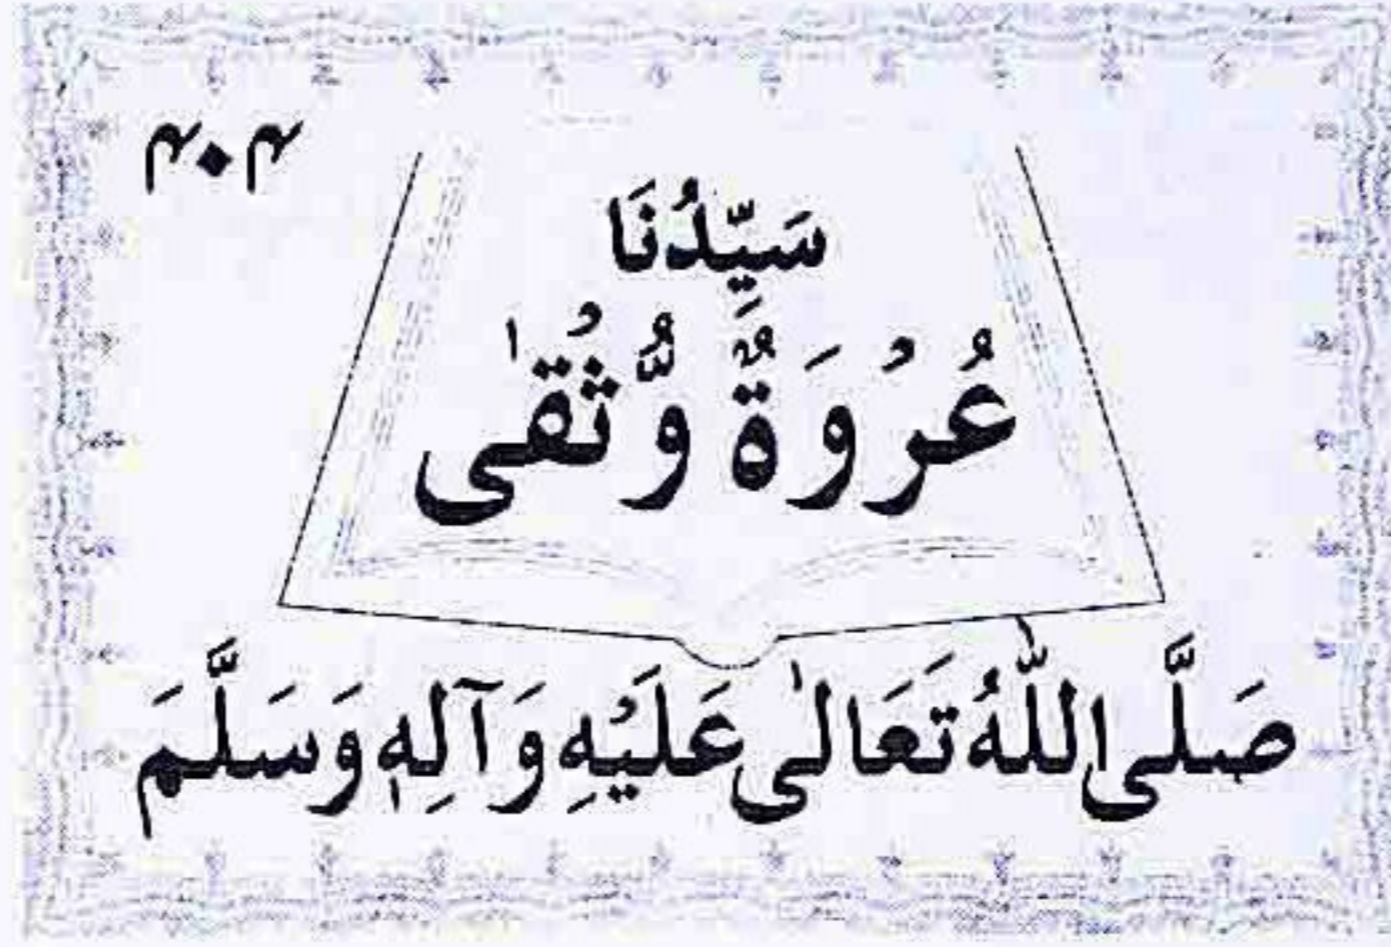 ۴۰۴
سَيِّدُنَا
عُرْوَةٌ وُّثْقٰى
صَلَّى اللّٰهُ تَعَالٰى عَلَيْهِ وَآلِهٖ وَسَلَّمَ